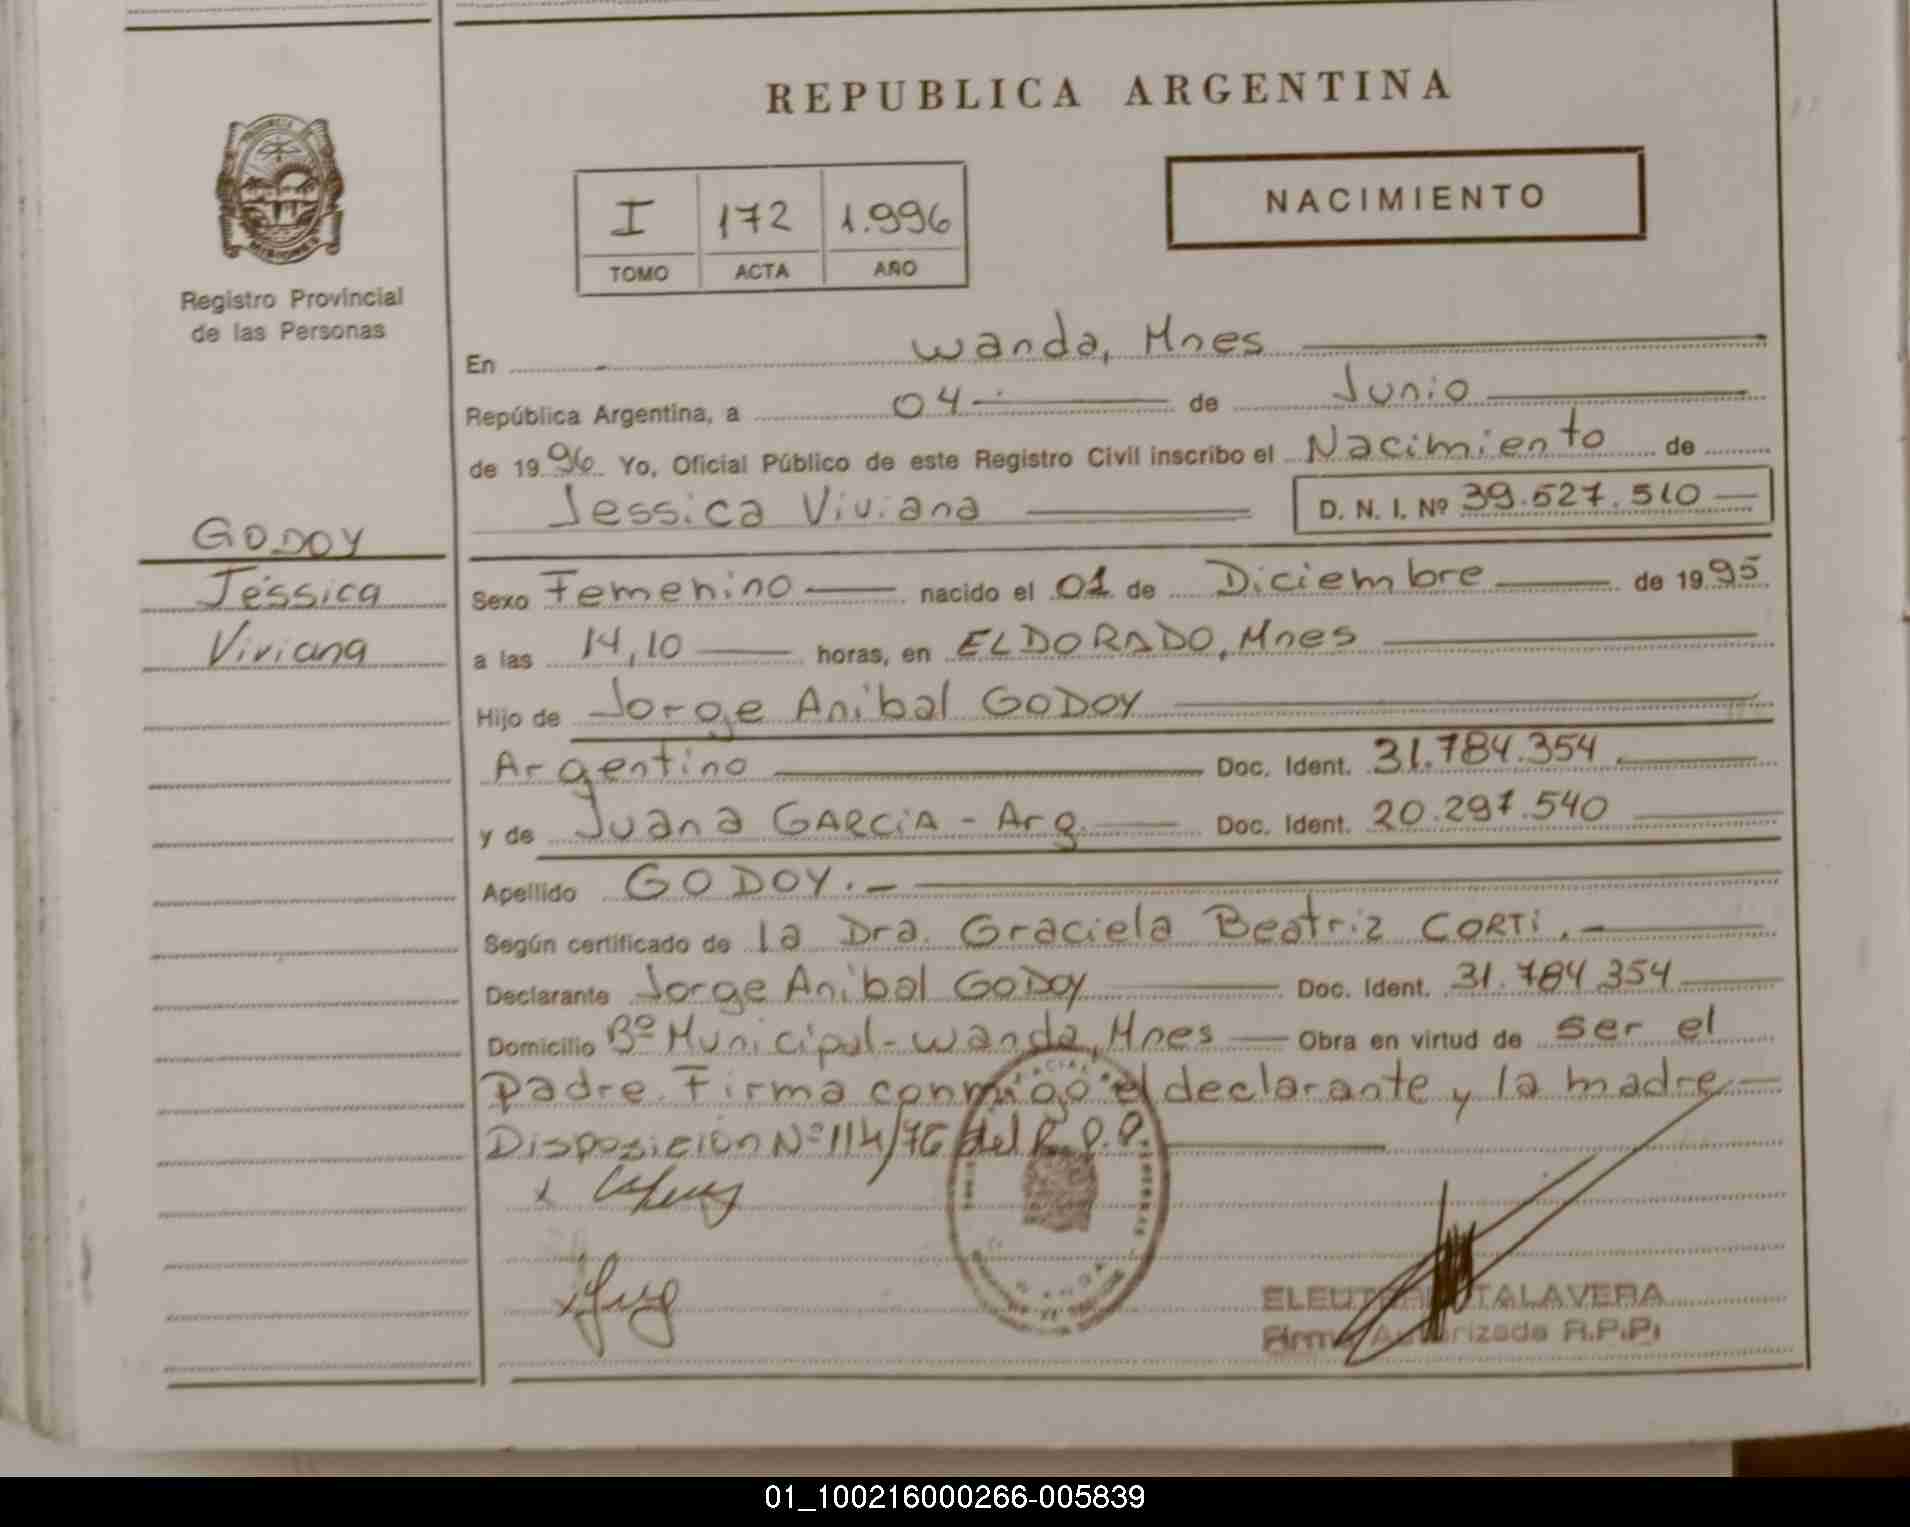 REPUBLICA ARGENTINA
I 172 1.996
TOMO ACTA AÑO
NACIMIENTO
Registro Provincial
de las Personas
GODOY
Jéssica
Viviana
En wanda, Mnes
República Argentina, a 04 de Junio
de 1996 Yo, Oficial Público de este Registro Civil inscribo el Nacimiento de
Jessica Viviana D. N. I. Nº 39.527.510
Sexo Femenino nacido el 01 de Diciembre de 1995
a las 14,10 horas, en ELDORADO, Mnes
Hijo de Jorge Anibal GODOY
Argentino Doc. Ident. 31.784.354
y de Juana GARCIA - Arg. Doc. Ident. 20.297.540
Apellido GODOY.-
Según certificado de la Dra. Graciela Beatriz CORTI.-
Declarante Jorge Anibal GODOY Doc. Ident. 31.784.354
Domicilio Bº Municipal - wanda, Mnes Obra en virtud de ser el
padre. Firma conmigo el declarante y la madre
Disposición Nº 114/76 del R.P.P.
TALAVERA
Firma Autorizada R.P.P.
01_100216000266-005839